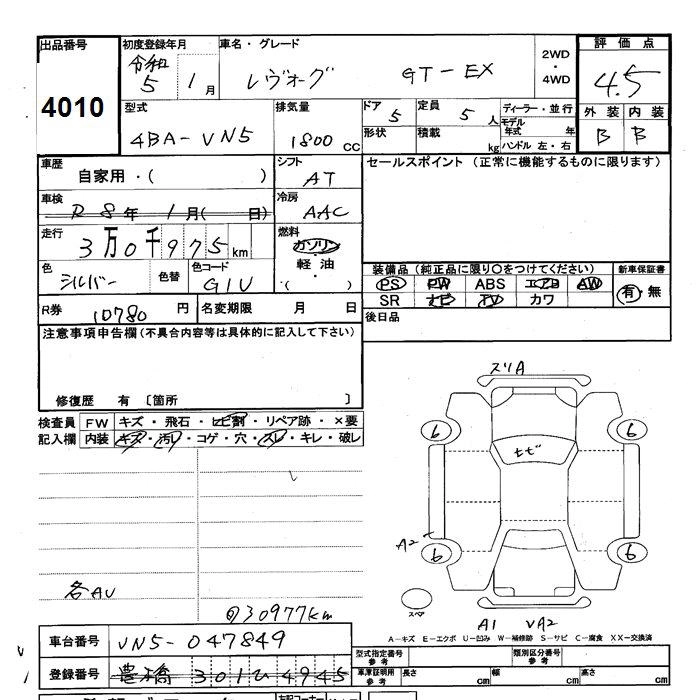 出品番号 初度登録年月 車名・グレード 2WD・4WD 評価点
4010 令和5 1月 レヴォーグ GT-EX 4.5
型式 排気量 ドア 5 定員 5人 ディーラー・並行 外装 内装
4BA-VN5 1800cc 形状 積載 kg モデル年式 年 ハンドル 左・右 B B
車歴 自家用・( ) シフト AT セールスポイント (正常に機能するものに限ります)
車検 R8年 1月( 日) 冷房 AAC
走行 3万0千975km 燃料 ガソリン
軽油
・( )
色 シルバー 色替 色コード G1U
装備品 (純正品に限り○をつけてください) 新車保証書
PS PW ABS エアB AW 有・無
SR ナビ TV カワ
R券 10780円 名変期限 月 日 後日品
注意事項申告欄(不具合内容等は具体的に記入して下さい)
修復歴 有 〔箇所 〕
検査員 FW キズ・飛石・ヒビ割・リペア跡・×要
記入欄 内装 キズ・汚れ・コゲ・穴・スレ・キレ・破レ
スリA
6 6
ヒビ
A2
6 6
各AU
スペア
30977km
A1 VA2
A-キズ E-エクボ U-凹み W-補修跡 S-サビ C-腐食 XX-交換済
車台番号 VN5-047849
型式指定番号 参考 類別区分番号 参考
登録番号 豊橋 301 4945
車庫証明用 参考 長さ cm 幅 cm 高さ cm